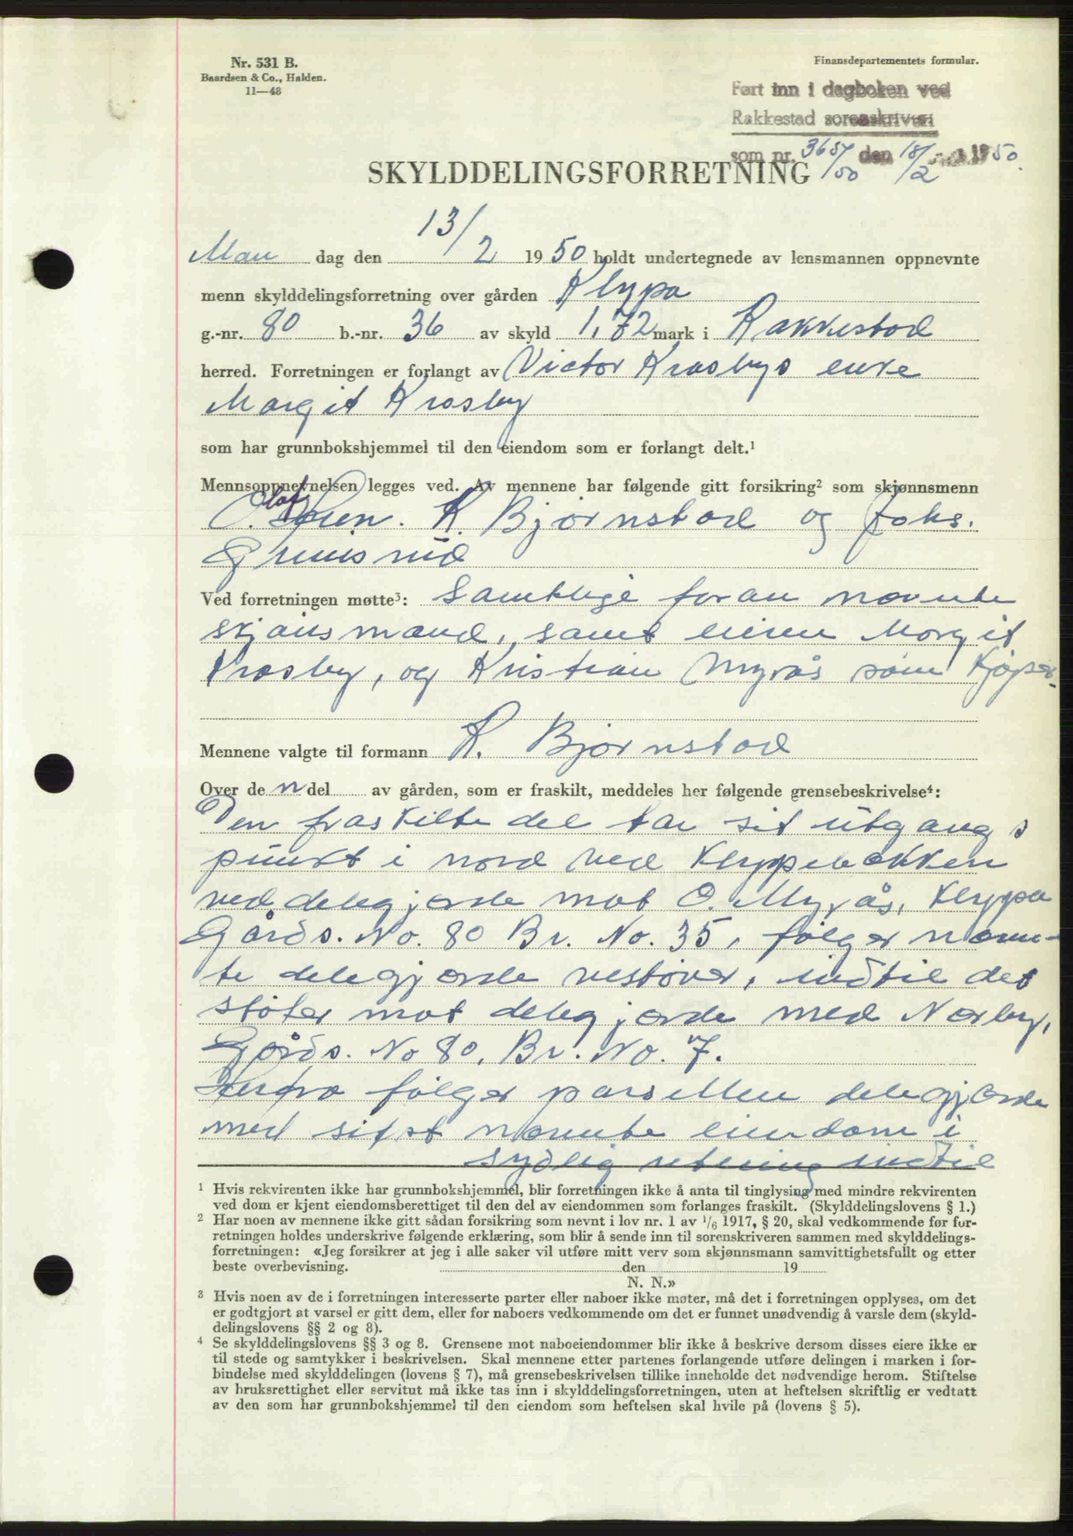 Nr. 531 B.
Baardsen & Co., Halden.
11—48
Finansdepartementets formular.
Ført inn i dagboken ved
Rakkestad sorenskriveri
som nr. 365/50 den 18/2 1950.
SKYLDDELINGSFORRETNING
Man dag den 13/2 1950 holdt undertegnede av lensmannen oppnevnte
menn skylddelingsforretning over gården Klypa
g.-nr. 80 b.-nr. 36 av skyld 1,72 mark i Rakkestad
herred. Forretningen er forlangt av Victor Krosbys enke
Margit Krosby
som har grunnbokshjemmel til den eiendom som er forlangt delt.¹
Mennsoppnevnelsen legges ved. Av mennene har følgende gitt forsikring² som skjønnsmenn
Olaf K. Bjørnstad og Johs.
Ved forretningen møtte³: Samtlige foran nævnte
skjønsmænd, samt eieren Margit
Krosby, og Kristian Myrås som kjøper.
Mennene valgte til formann K. Bjørnstad
Over den del av gården, som er fraskilt, meddeles her følgende grensebeskrivelse⁴:
Den fraskilte del tar sit utgangs
punkt i nord ved Klyppebækken
ved delegjærde mot O. Myrås, Klyppa
Gårds. No. 80 Br. No. 35, følger nævn-
te delegjærde vestover, indtil det
støter mot delegjærde med Nærby,
Gårds. No 80, Br. No. 7.
Herfra følger parsellen delegjærde
med sidst nævnte eiendom i
sydlig retning indtil
¹ Hvis rekvirenten ikke har grunnbokshjemmel, blir forretningen ikke å anta til tinglysing med mindre rekvirenten
ved dom er kjent eiendomsberettiget til den del av eiendommen som forlanges fraskilt. (Skylddelingslovens § 1.)
² Har noen av mennene ikke gitt sådan forsikring som nevnt i lov nr. 1 av 1/6 1917, § 20, skal vedkommende før for-
retningen holdes underskrive følgende erklæring, som blir å sende inn til sorenskriveren sammen med skylddelings-
forretningen: «Jeg forsikrer at jeg i alle saker vil utføre mitt verv som skjønnsmann samvittighetsfullt og etter
beste overbevisning. den 19
N. N.»
³ Hvis noen av de i forretningen interesserte parter eller naboer ikke møter, må det i forretningen opplyses, om det
er godtgjort at varsel er gitt dem, eller for naboers vedkommende om det er funnet unødvendig å varsle dem (skyld-
delingslovens §§ 2 og 8).
⁴ Se skylddelingslovens §§ 3 og 8. Grensene mot naboeiendommer blir ikke å beskrive dersom disses eiere ikke er
til stede og samtykker i beskrivelsen. Skal mennene etter partenes forlangende utføre delingen i marken i for-
bindelse med skylddelingen (lovens § 7), må grensebeskrivelsen tillike inneholde det nødvendige herom. Stiftelse
av bruksrettighet eller servitut må ikke tas inn i skylddelingsforretningen, uten at heftelsen skriftlig er vedtatt
av den som har grunnbokshjemmel til den eiendom som heftelsen skal hvile på (lovens § 5).